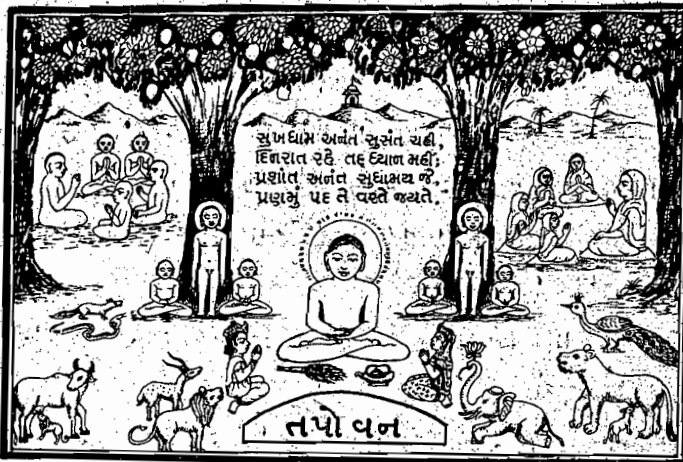 સુખધામ અનંત સુસંત ચહી,
દિનરાત રહે તદ્દ ધ્યાન મહીં;
પ્રશાંત અનંત સુધામય જે,
પ્રણમું પદ તે વરતે જયતે.
તપોવન